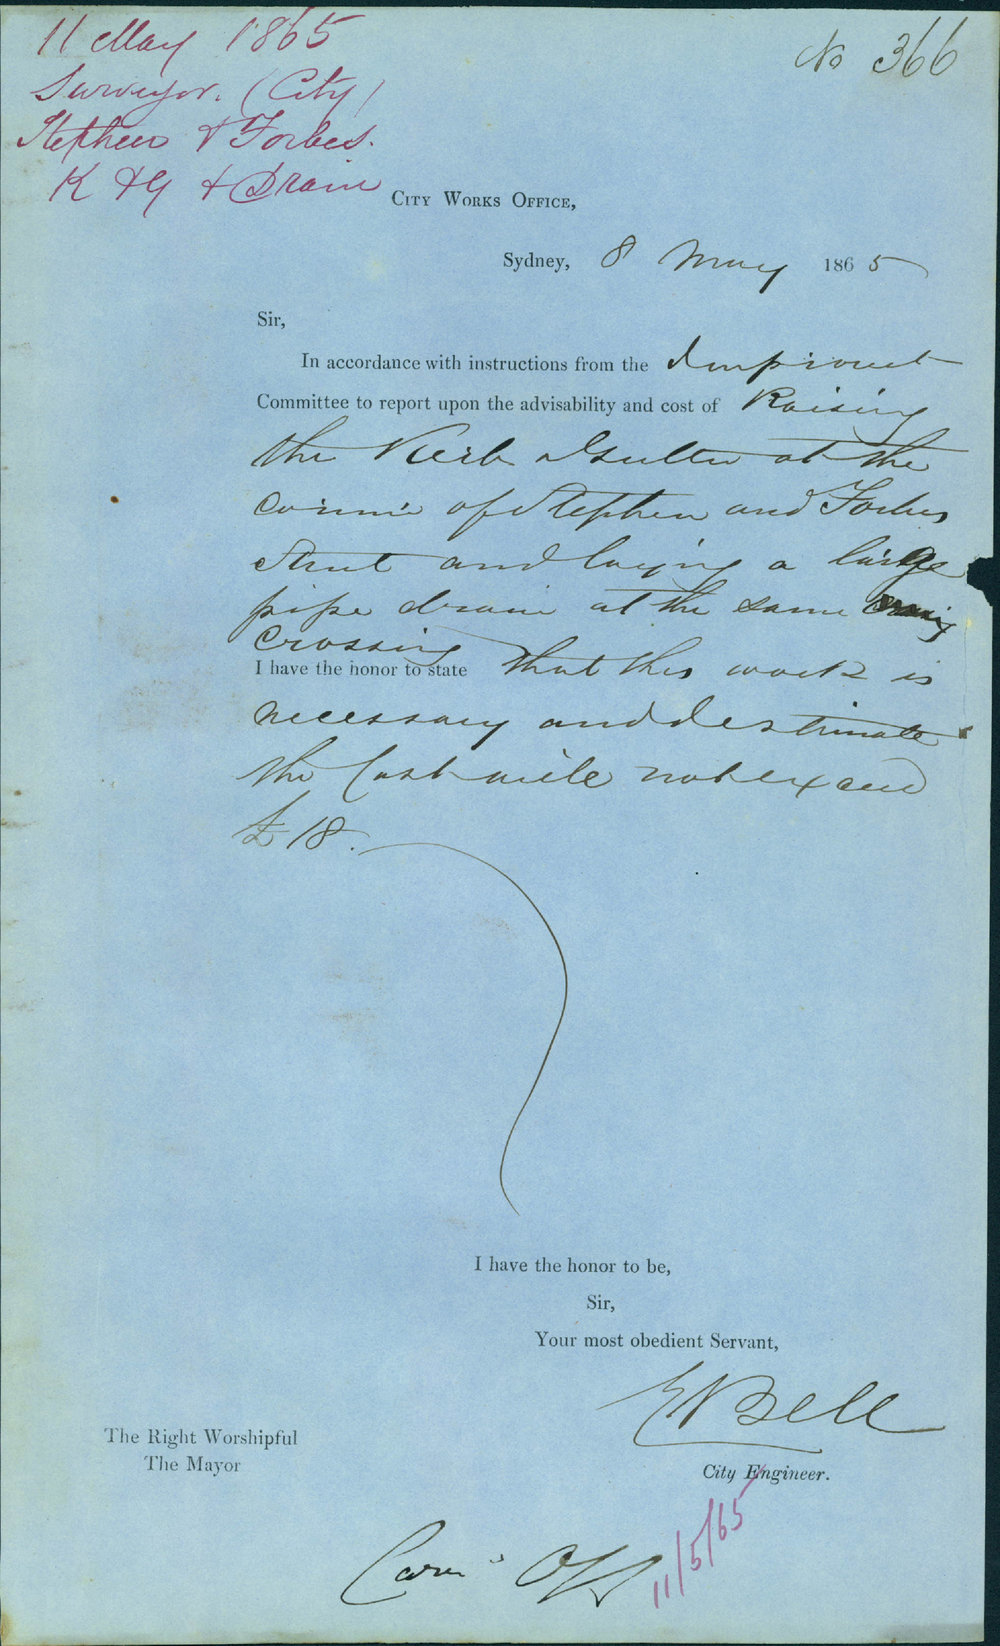 11 May 1865
No 366
Surveyor. (City)
Stephen & Forbes.
K & G & Drain
City Works Office,
Sydney, 8 May 1865
Sir,
In accordance with instructions from the Improvmt
Committee to report upon the advisability and cost of Raising
the Kerb & Gutter at the
corner of Stephen and Forbes
Street and laying a large
pipe drain at the same
crossing
I have the honor to state that this work is
necessary and I estimate
the Cost will not exceed
£18.
I have the honor to be,
Sir,
Your most obedient Servant,
E Bell
The Right Worshipful
The Mayor
City Engineer.
11/5/65